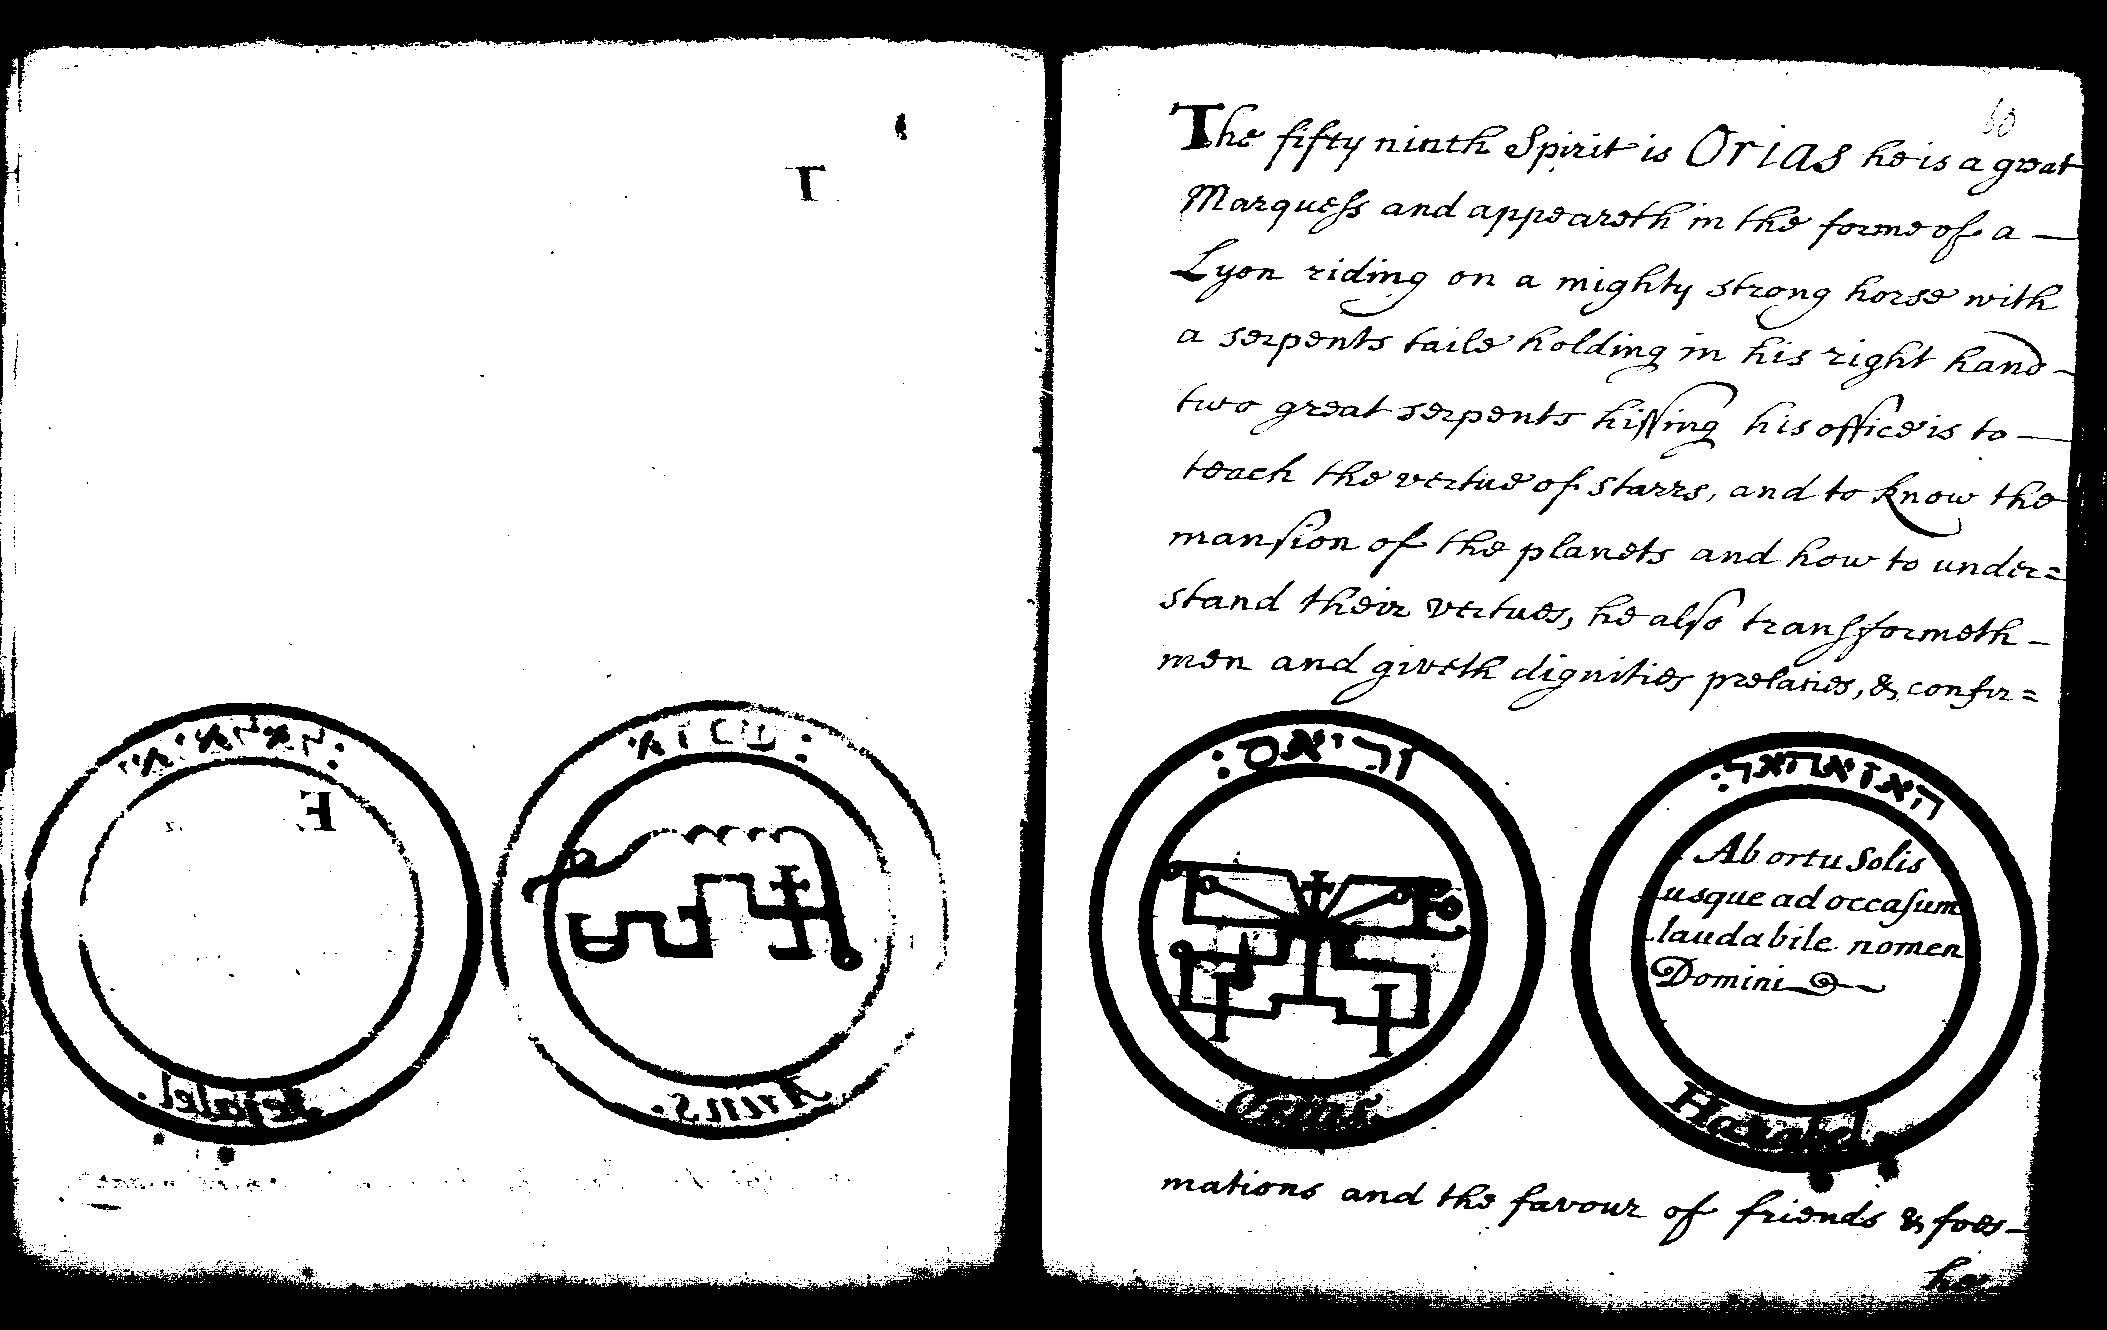 60
The fifty ninth Spirit is Orias he is a great
Marquess and appeareth in the forme of a —
Lyon riding on a mighty strong horse with
a serpents taile holding in his right hand -
two great serpents hissing his office is to —
teach the vertue of starrs, and to know the
mansion of the planets and how to under=
stand their vertues, he also transformeth -
men and giveth dignities prelacies, & confir=
וריאס:
Orias.
האזאהאל:
Ab ortu Solis
usque ad occasum
laudabile nomen
Domini
Hazahel.
mations and the favour of friends & foes -
he